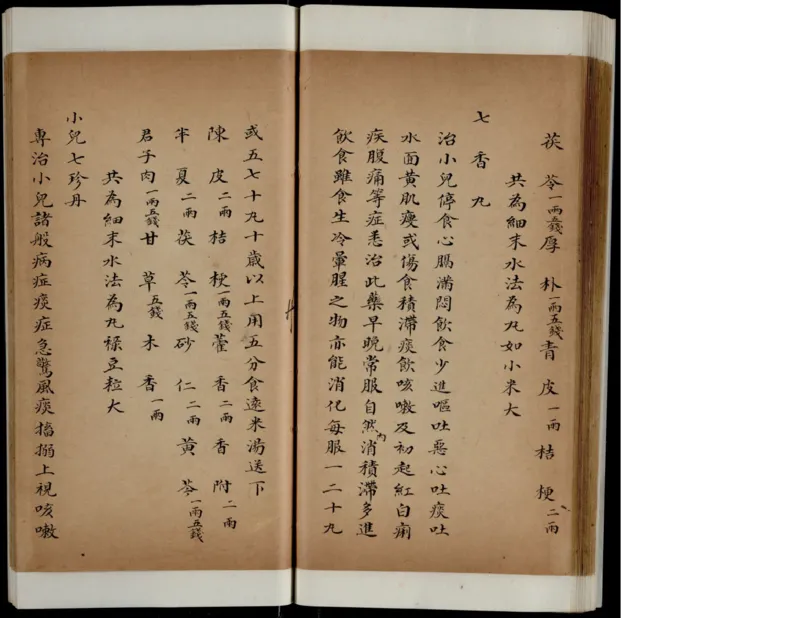 茯苓一兩五錢厚朴一兩五錢青皮一兩桔梗二兩
共為細末水法為丸如小米大
七香丸
治小兒停食心膈滿悶飲食少進嘔吐惡心吐痰吐
水面黃肌瘦或傷食積滯痰飲咳嗽及初起紅白痢
疾腹痛等症悉治此藥早晚常服自然內消積滯多進
飲食雖食生冷葷腥之物亦能消化每服一二十丸
或五七十丸十歲以上用五分食遠米湯送下
陳皮二兩桔梗一兩五錢藿香二兩香附二兩
半夏二兩茯苓一兩五錢砂仁二兩黃芩一兩五錢
君子肉一兩五錢甘草五錢木香一兩
共為細末水法為丸菉豆粒大
小兒七珍丹
專治小兒諸般病症痰症急驚風痰搐搦上視咳嗽